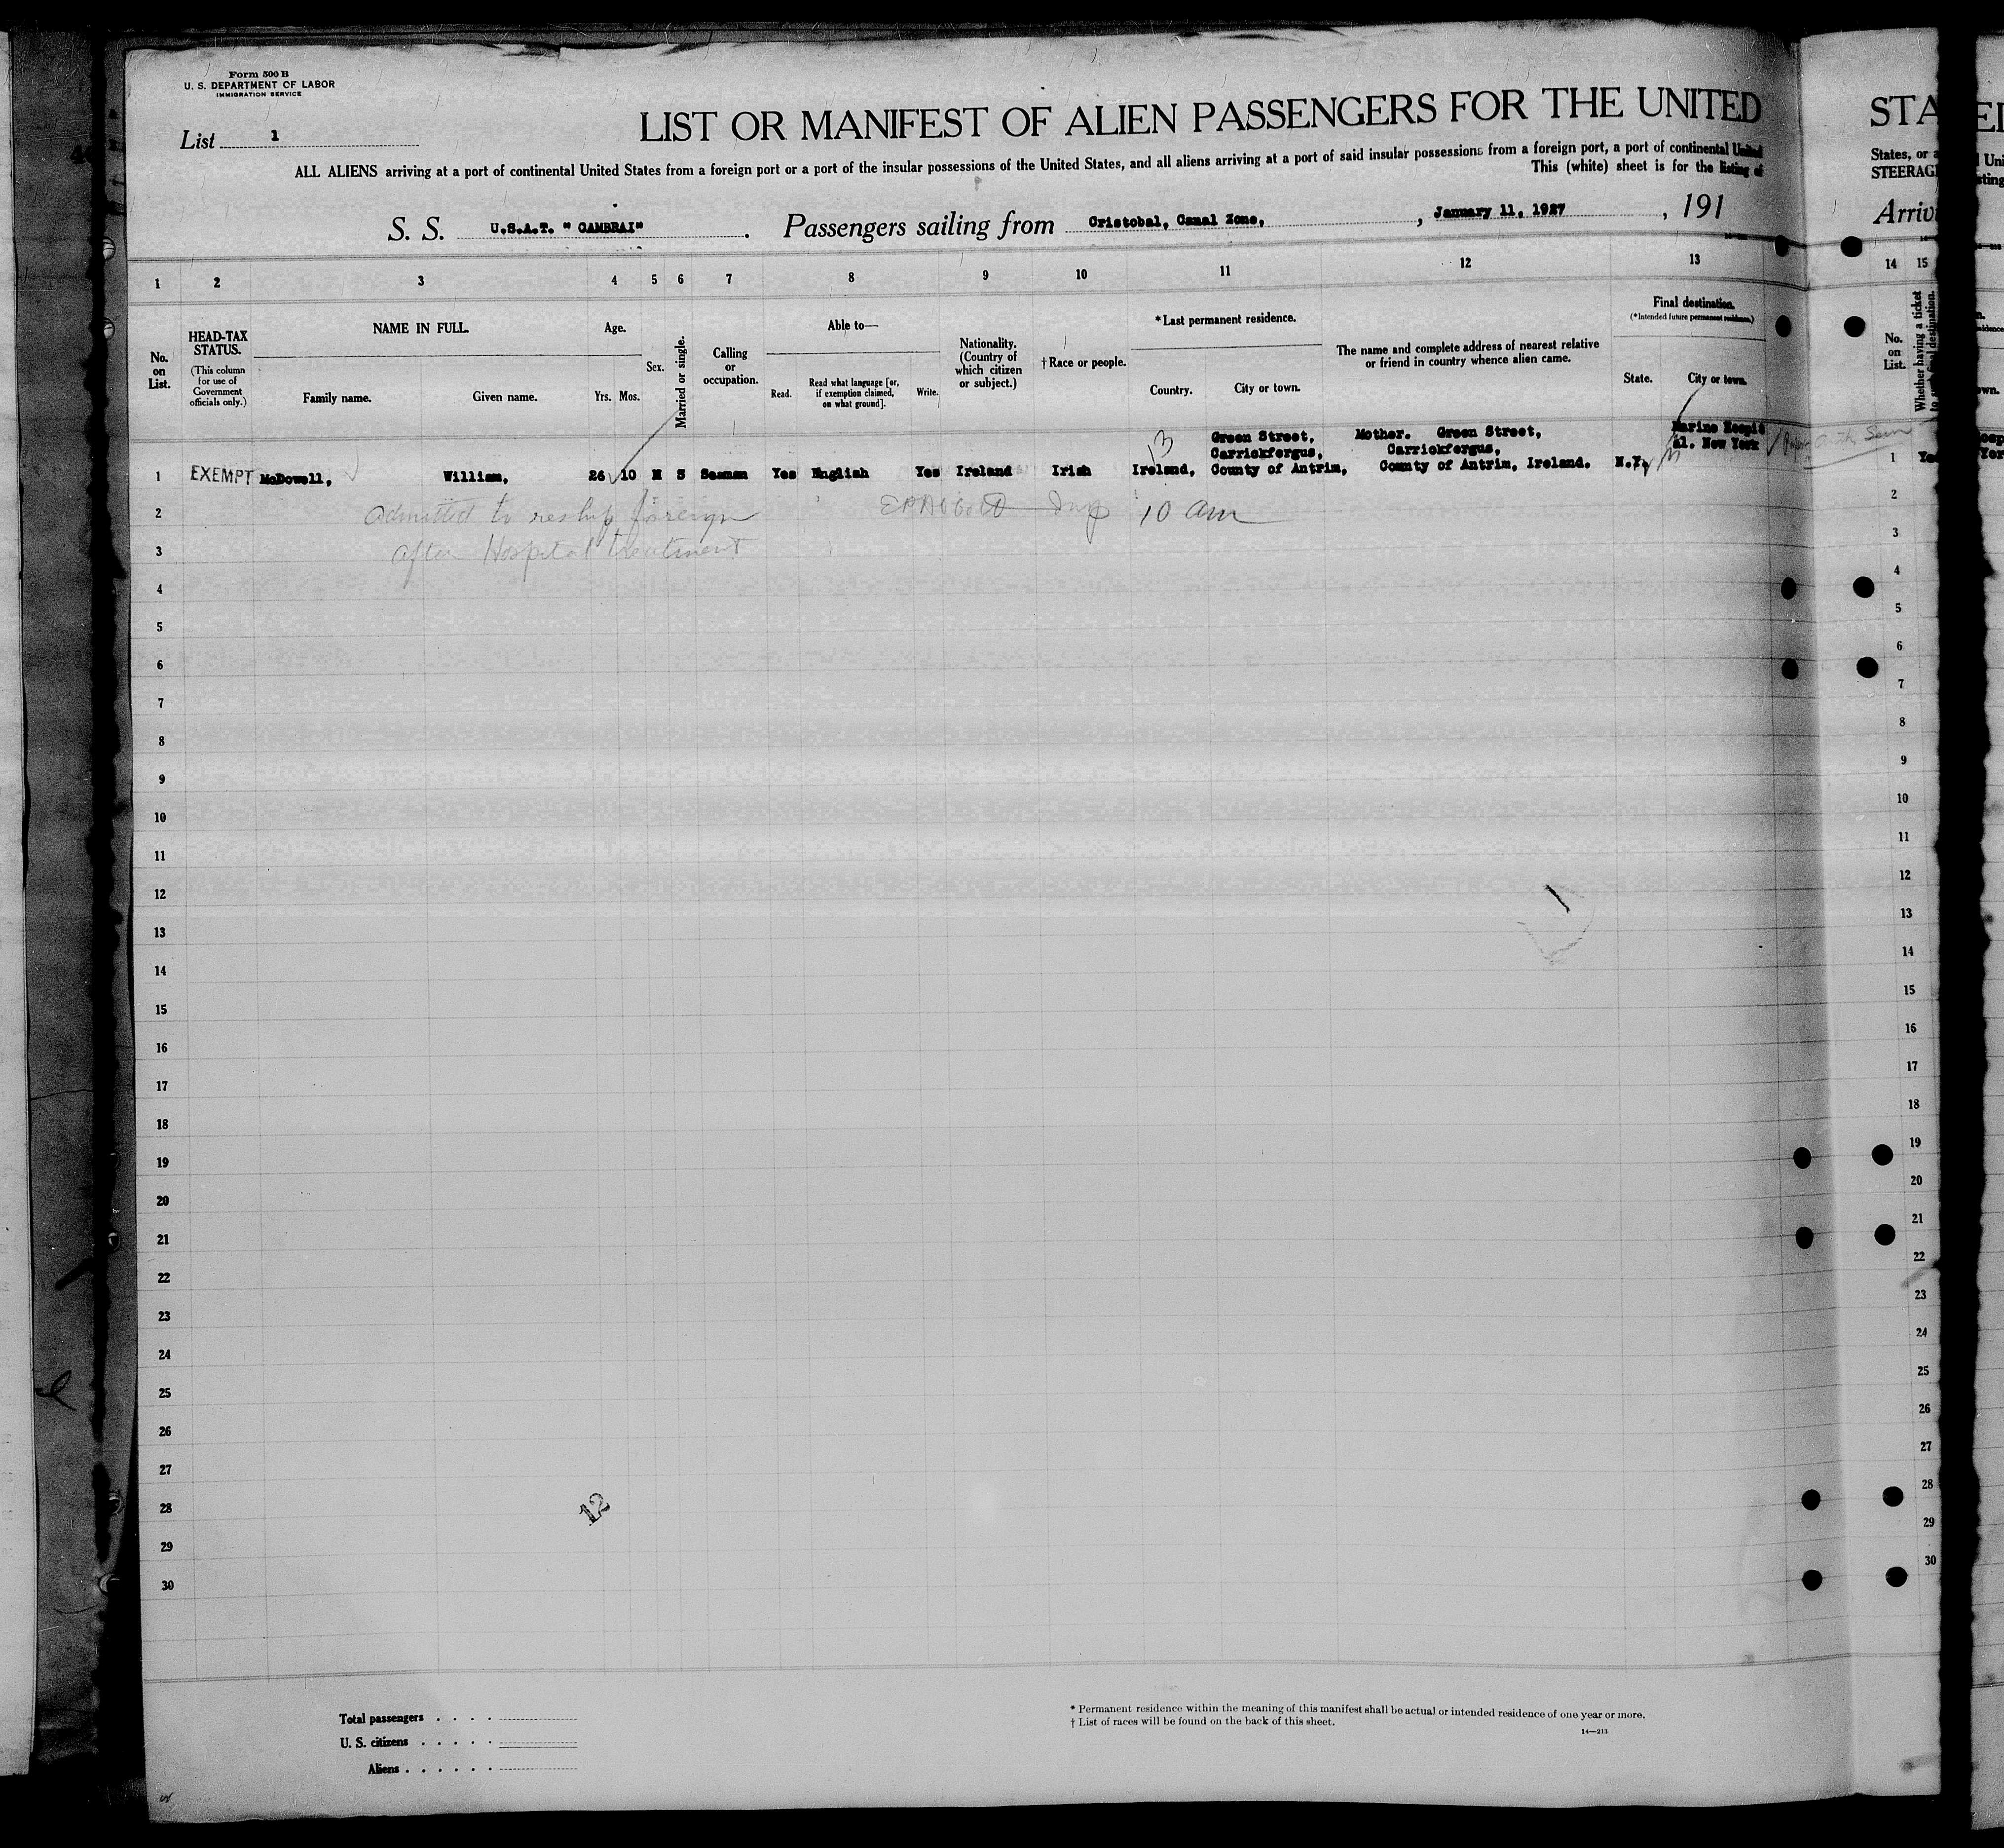 Form 500 B
U. S. DEPARTMENT OF LABOR
IMMIGRATION SERVICE
List 1
LIST OR MANIFEST OF ALIEN PASSENGERS FOR THE UNITED
ALL ALIENS arriving at a port of continental United States from a foreign port or a port of the insular possessions of the United States, and all aliens arriving at a port of said insular possessions from a foreign port, a port of continental United
This (white) sheet is for the listing of
S. S. U.S.A.T. " CAMBRAI" . Passengers sailing from Cristobal, Canal Zone, , January 11, 1927 , 191
1 2 3 4 5 6 7 8 9 10 11 12 13
No. on List.
HEAD-TAX STATUS.
(This column for use of Government officials only.)
NAME IN FULL.
Family name. Given name.
Age.
Yrs. Mos.
Sex.
Married or single.
Calling or occupation.
Able to—
Read. Read what language [or, if exemption claimed, on what ground]. Write.
Nationality. (Country of which citizen or subject.)
†Race or people.
*Last permanent residence.
Country. City or town.
The name and complete address of nearest relative or friend in country whence alien came.
Final destination.
(*Intended future permanent residence.)
State. City or town.
13 Green Street, Mother. Green Street, Marine Hospit
Carrickfergus, Carrickfergus, al. New York
1 EXEMPT McDowell, William, 26 10 M S Seaman Yes English Yes Ireland Irish Ireland, County of Antrim, County of Antrim, Ireland. N.Y.
2 Admitted to reship foreign 10 am
3 after Hospital treatment
4
5
6
7
8
9
10
11
12
13
14
15
16
17
18
19
20
21
22
23
24
25
26
27
28
12
29
30
Total passengers . . . .
U. S. citizens . . . . .
Aliens . . . . . .
* Permanent residence within the meaning of this manifest shall be actual or intended residence of one year or more.
† List of races will be found on the back of this sheet.
14—213
STA
States, or
STEERAG
Arriv
14 15
No. on List.
Whether having a ticket to such final destination.
1 Ye
2
3
4
5
6
7
8
9
10
11
12
13
14
15
16
17
18
19
20
21
22
23
24
25
26
27
28
29
30